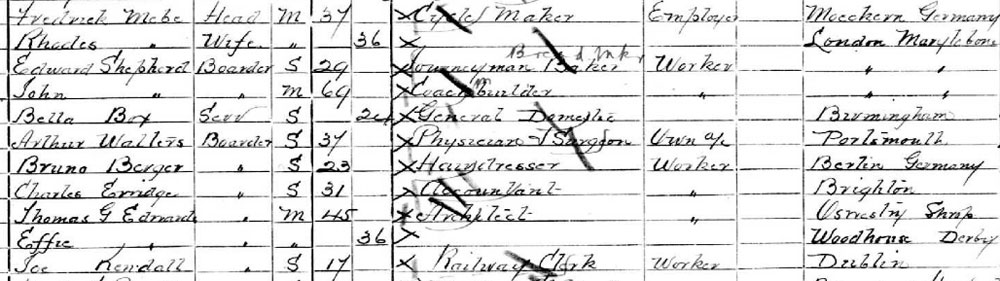 Fredrick Mebe Head M 37 X Cycle Maker Employer Moeckern Germany
Rhodes " Wife " 36 X London Marylebone
Edward Shepherd Boarder S 29 X Journeyman Baker Bread Mkr Worker " "
John " " M 69 X Coachbuilder " " "
Bella Box Serv S 24 X General Domestic Birmingham
Arthur Walters Boarder S 37 X Physician & Surgeon Own a/c Portsmouth
Bruno Berger " S 23 X Hairdresser Worker Berlin Germany
Charles Erridge " S 31 X Accountant " Brighton
Thomas G Edwards " M 45 X Architect " Oswestry Shrop
Effie " " " 36 X Woodhouse Derby
Joe Kendall " S 17 X Railway Clerk Worker Dublin